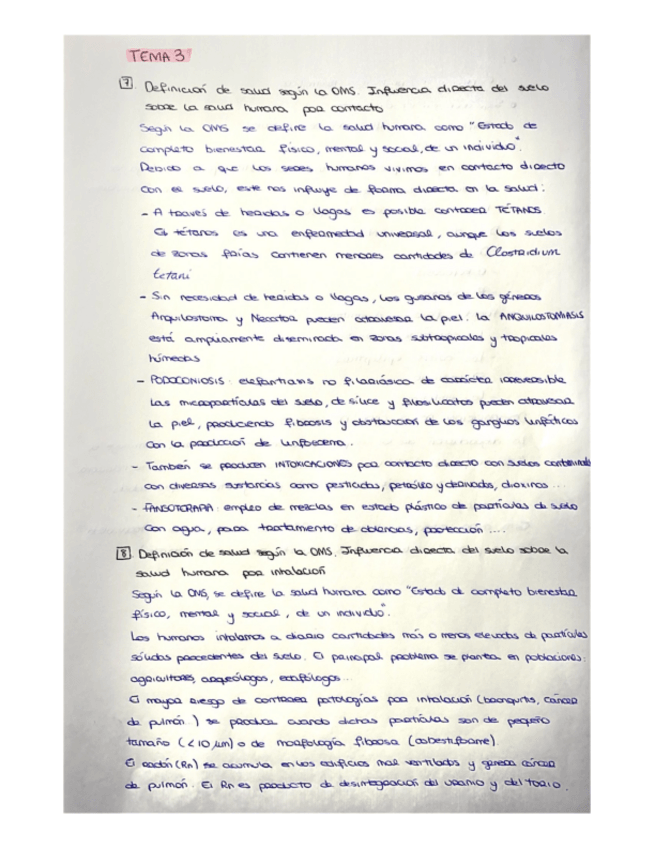 TEMA 3
7 Definición de salud según la OMS. Influencia directa del suelo
sobre la salud humana por contacto
Según la OMS se define la salud humana como "Estado de
completo bienestar físico, mental y social, de un individuo".
Debido a que los seres humanos vivimos en contacto directo
con el suelo, este nos influye de forma directa en la salud:
- A través de heridas o llagas es posible contraer TÉTANOS.
El tétanos es una enfermedad universal, aunque los suelos
de zonas frías contienen menores cantidades de Clostridium
tetani
- Sin necesidad de heridas o llagas, los gusanos de los géneros
Anquilostoma y Necator pueden atravesar la piel. La ANQUILOSTOMIASIS
está ampliamente diseminada en zonas subtropicales y tropicales
húmedas
- PODOCONIOSIS: elefantiasis no filariásica de carácter irreversible
Las micropartículas del suelo, de sílice y filosilicatos pueden atravesar
la piel, produciendo fibrosis y obstrucción de los ganglios linfáticos
con la producción de linfoedema.
- También se producen INTOXICACIONES por contacto directo con suelos contaminados
con diversas sustancias como pesticidas, petróleo y derivados, dioxinas...
- FANGOTERAPIA: empleo de mezclas en estado plástico de partículas de suelo
con agua, para tratamiento de dolencias, protección ....
8 Definición de salud según la OMS. Influencia directa del suelo sobre la
salud humana por inhalación
Según la OMS, se define la salud humana como "Estado de completo bienestar
físico, mental y social, de un individuo".
Los humanos inhalamos a diario cantidades más o menos elevadas de partículas
sólidas procedentes del suelo. El principal problema se plantea en poblaciones:
agricultores, arqueólogos, edafólogos...
El mayor riesgo de contraer patologías por inhalación (bronquitis, cáncer
de pulmón) se produce cuando dichas partículas son de pequeño
tamaño (<10 µm) o de morfología fibrosa (asbestiforme).
El radón (Rn) se acumula en los edificios mal ventilados y genera cáncer
de pulmón. El Rn es producto de desintegración del uranio y del torio.